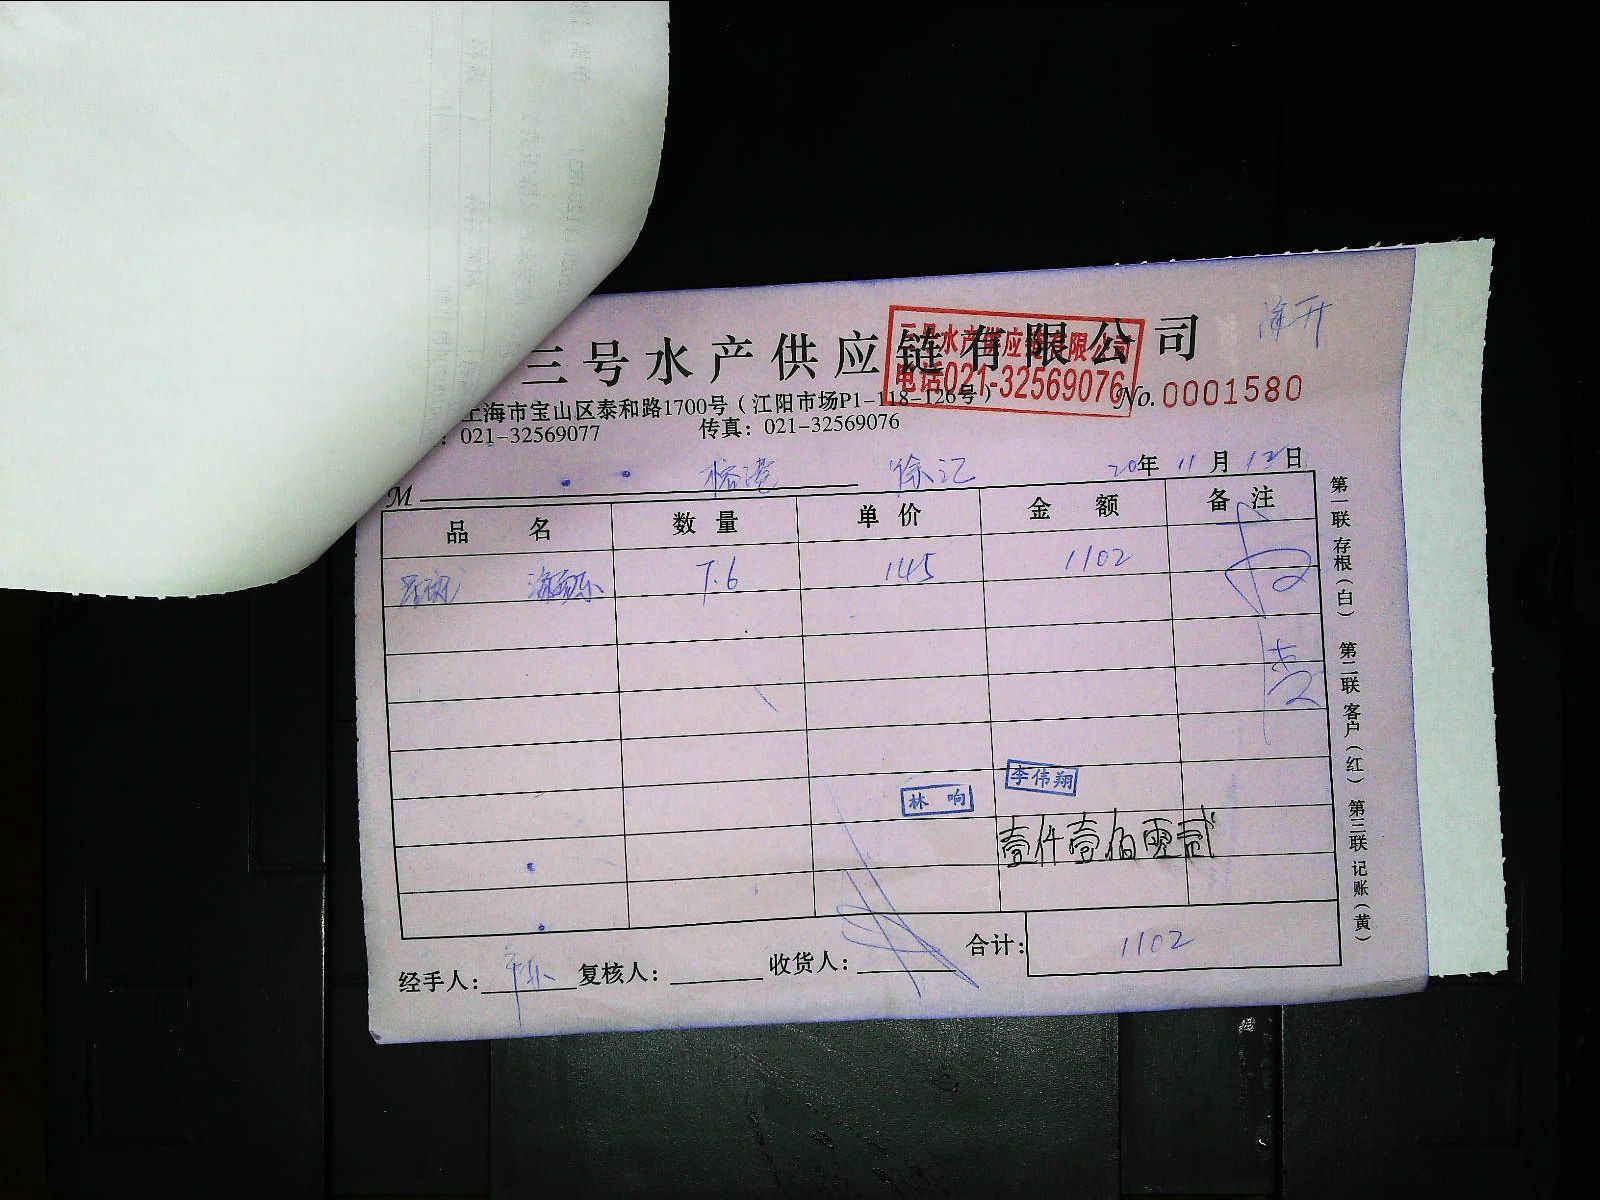 三号水产供应链有限公司
三号水产供应链有限公司
电话021-32569076
No.0001580
上海市宝山区泰和路1700号（江阳市场P1-118-126号）
：021-32569077 传真：021-32569076
M 徐记 20年 11月 12日
品名 数量 单价 金额 备注
7.6 145 1102
李伟翔
林响
壹仟壹佰零贰
合计: 1102
经手人: 复核人: 收货人:
第一联存根（白） 第二联客户（红） 第三联记账（黄）